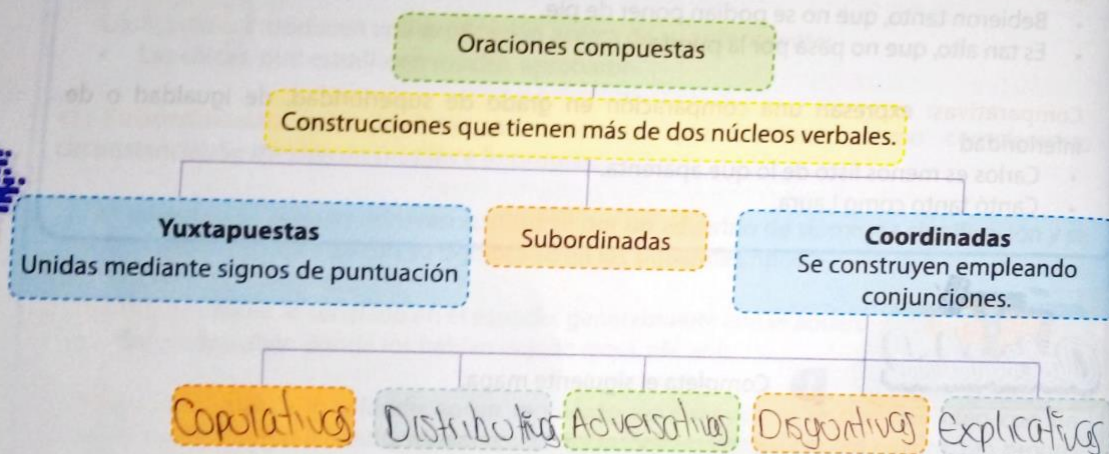 Oraciones compuestas
Construcciones que tienen más de dos núcleos verbales.
Yuxtapuestas
Unidas mediante signos de puntuación
Subordinadas
Coordinadas
Se construyen empleando
conjunciones.
Copulativas Distributivas Adversativas Disyuntivas Explicativas